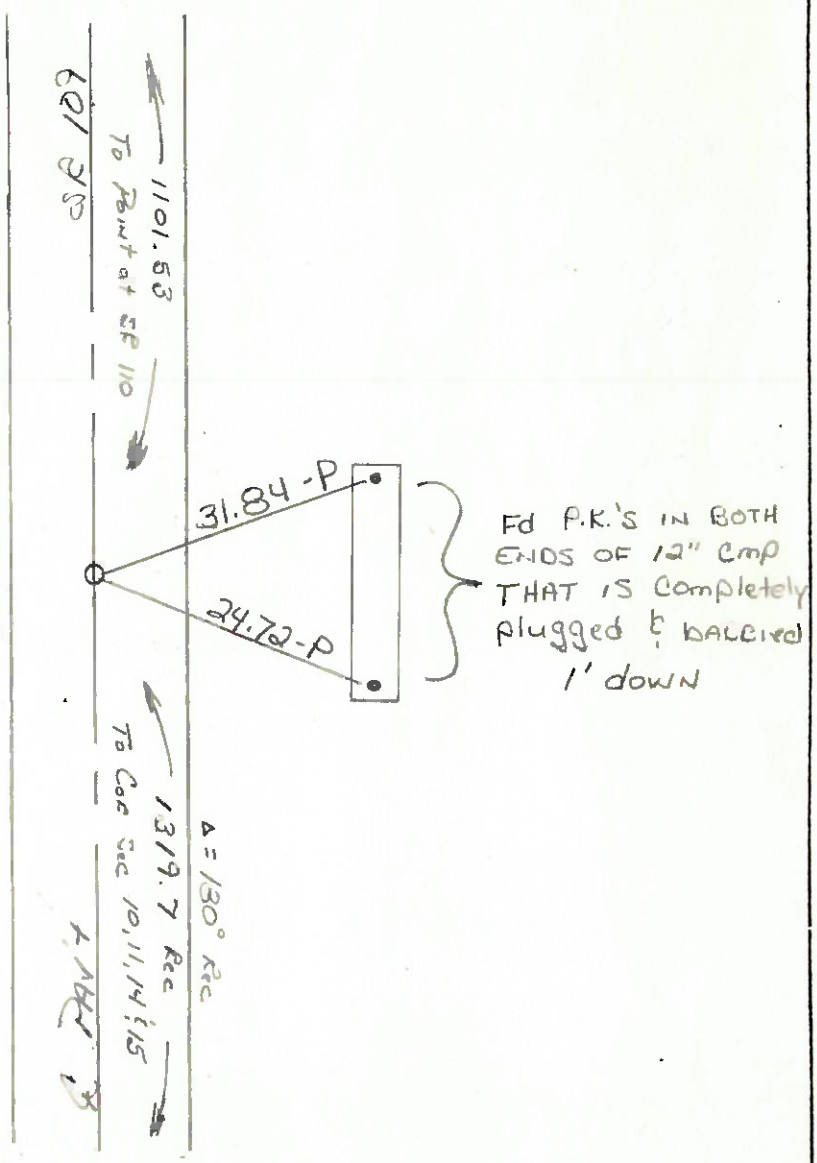 SR 109
1101.53
To Point at SR 110
31.84-P
24.72-P
Fd P.K.'s IN BOTH
ENDS OF 12" Cmp
THAT IS Completely
plugged &
1' down
Δ = 180° Rec
1319.7 Rec
To Cor Sec 10,11,14 & 15